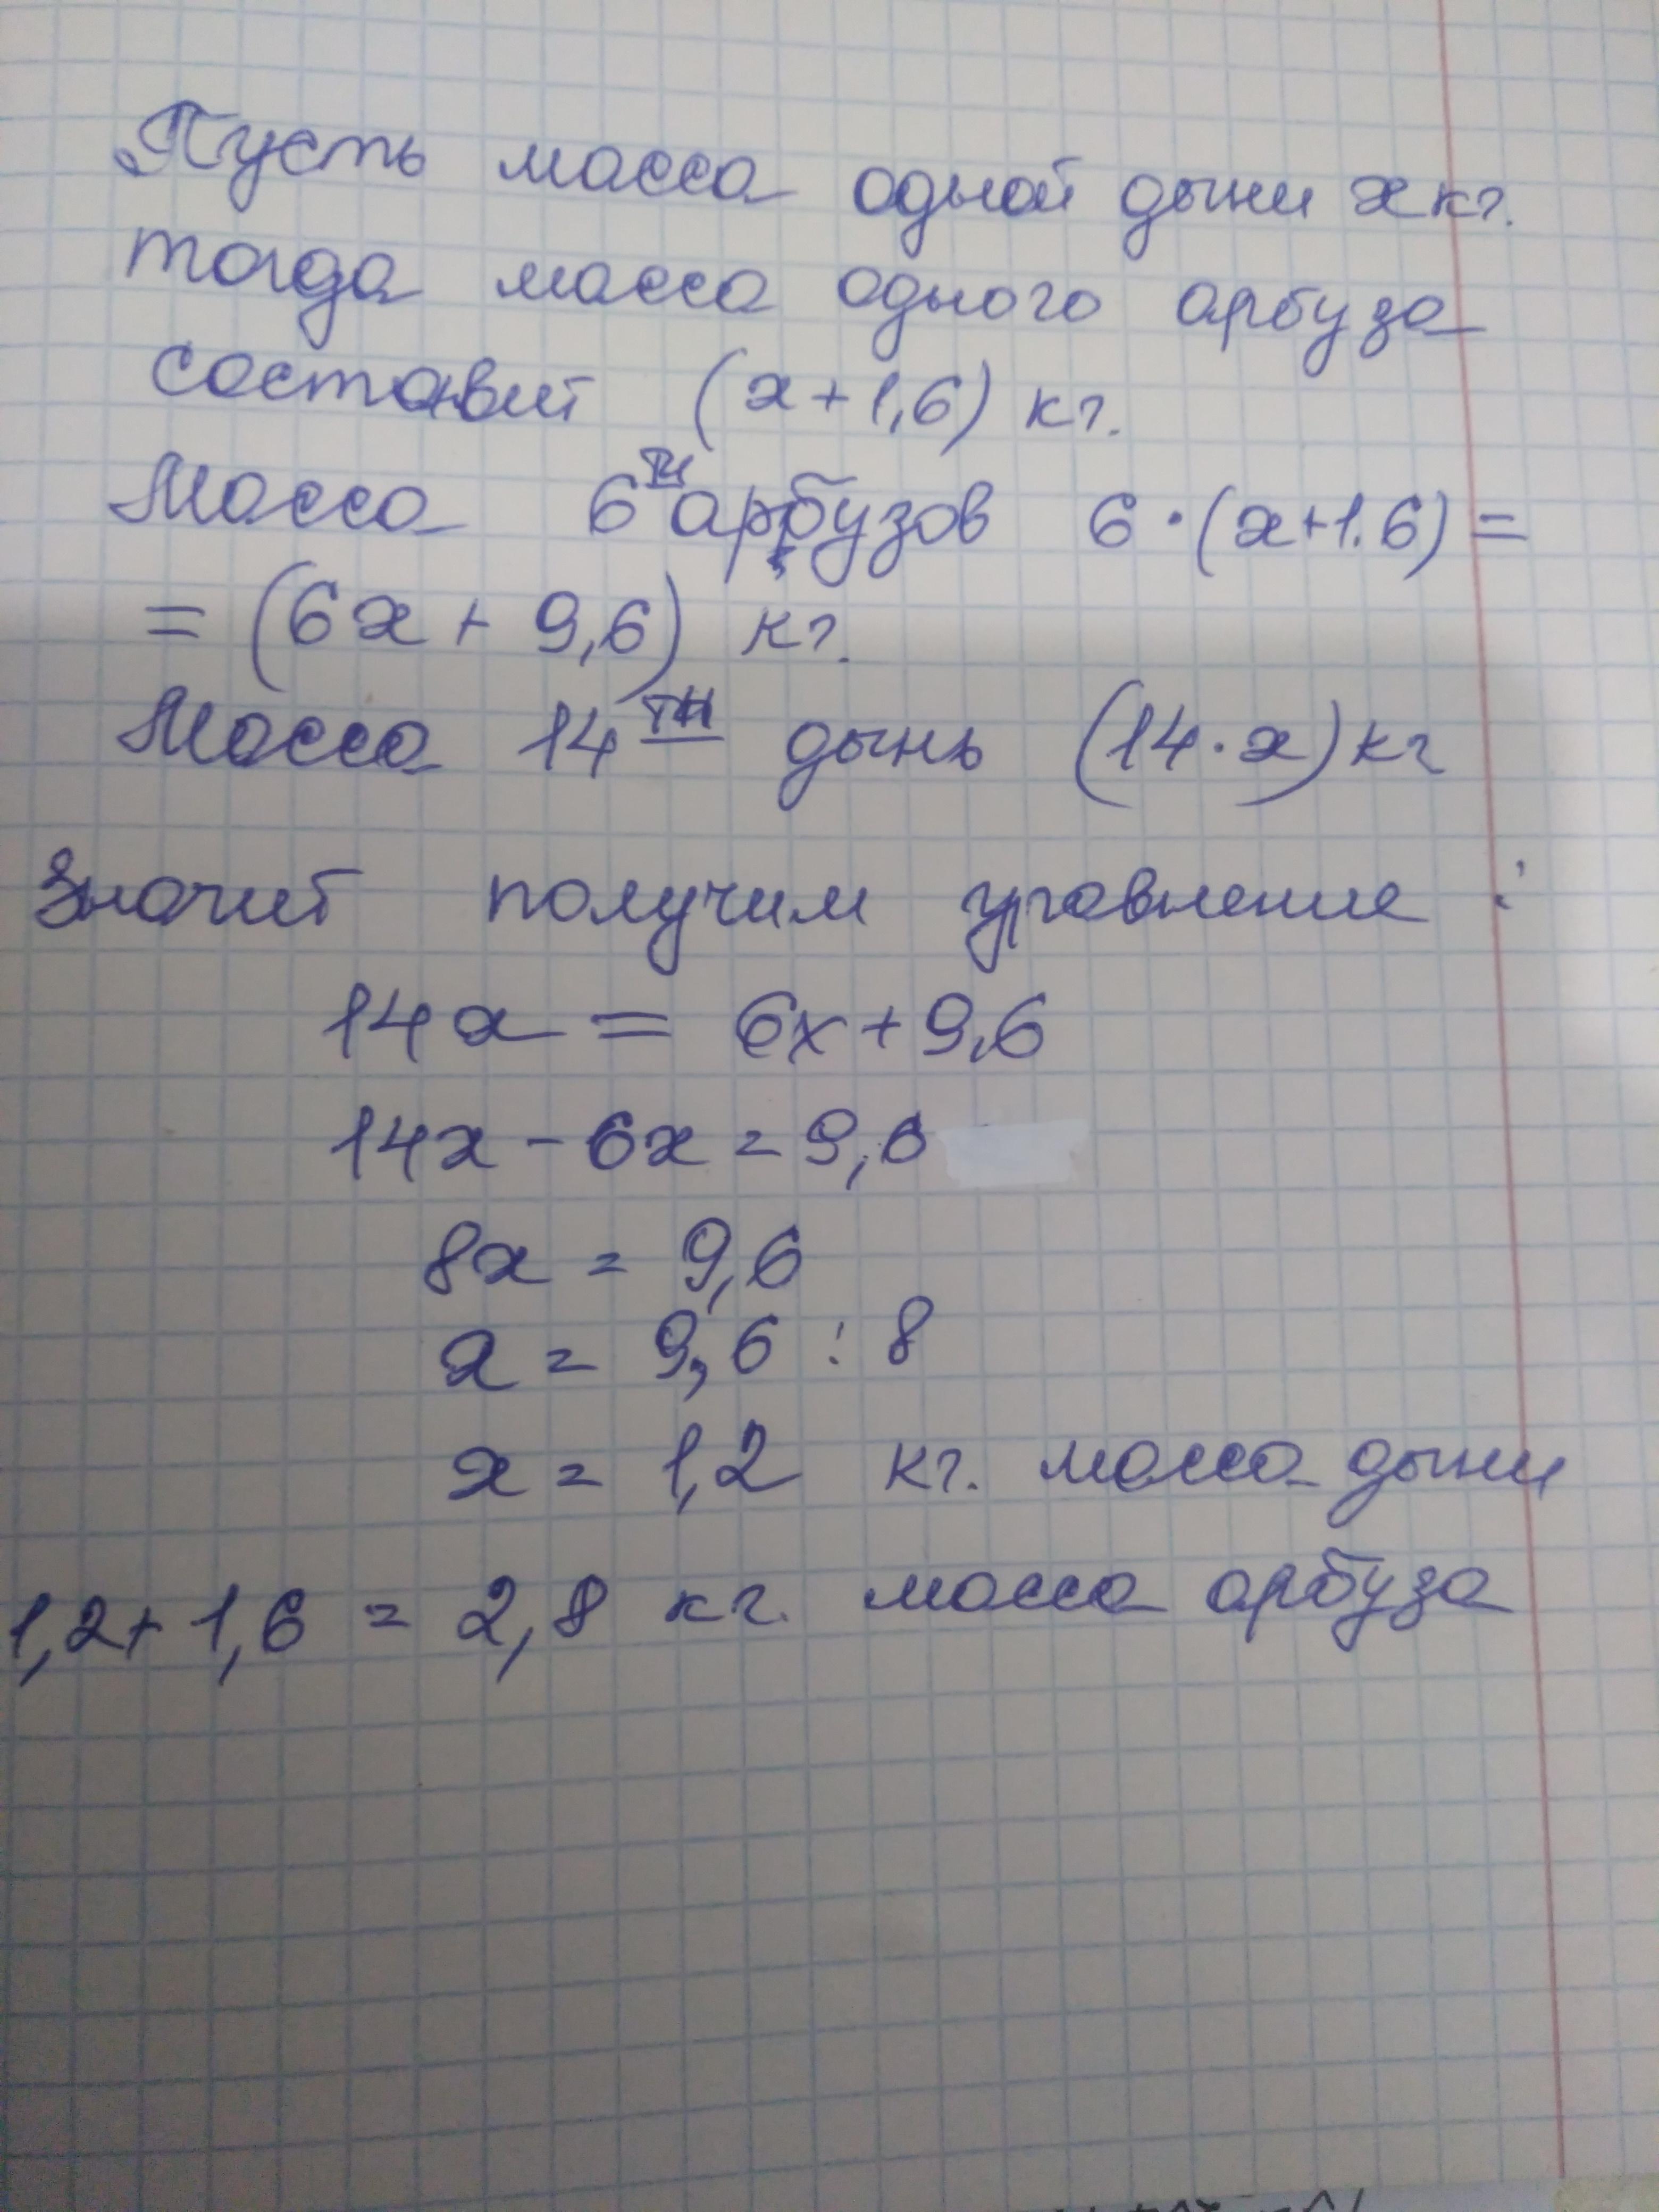 Пусть масса одной дыни x кг.
тогда масса одного арбуза
составит (x+1,6) кг.
Масса 6ти арбузов 6·(x+1.6)=
= (6x + 9,6) кг.
Масса 14ти дынь (14·x) кг
Значит получим уравнение :
14x = 6x+9,6
14x - 6x = 9,6
8x = 9,6
x = 9,6 : 8
x = 1,2 кг. масса дыни
1,2+1,6 = 2,8 кг. масса арбуза